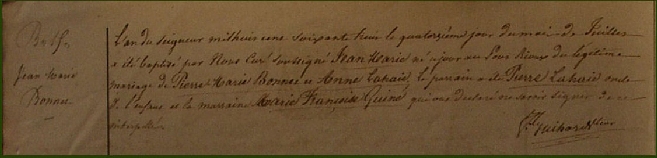 Bapt.
Jean Marie
Bonnec
L'an du Seigneur mil huit cent soixante huit le quatorzième jour du mois de Juillet
a été baptisé par Nous Curé soussigné Jean Marie né ce jour au du légitime
mariage de Pierre Marie Bonnec et Anne Lahaie, le parrain a été Pierre Lahaie oncle
de l'enfant et la marraine Marie Françoise Guiné qui ont déclaré ne savoir signer de ce
interpellés